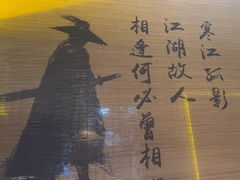 寒江孤影
江湖故人
相逢何必曾相